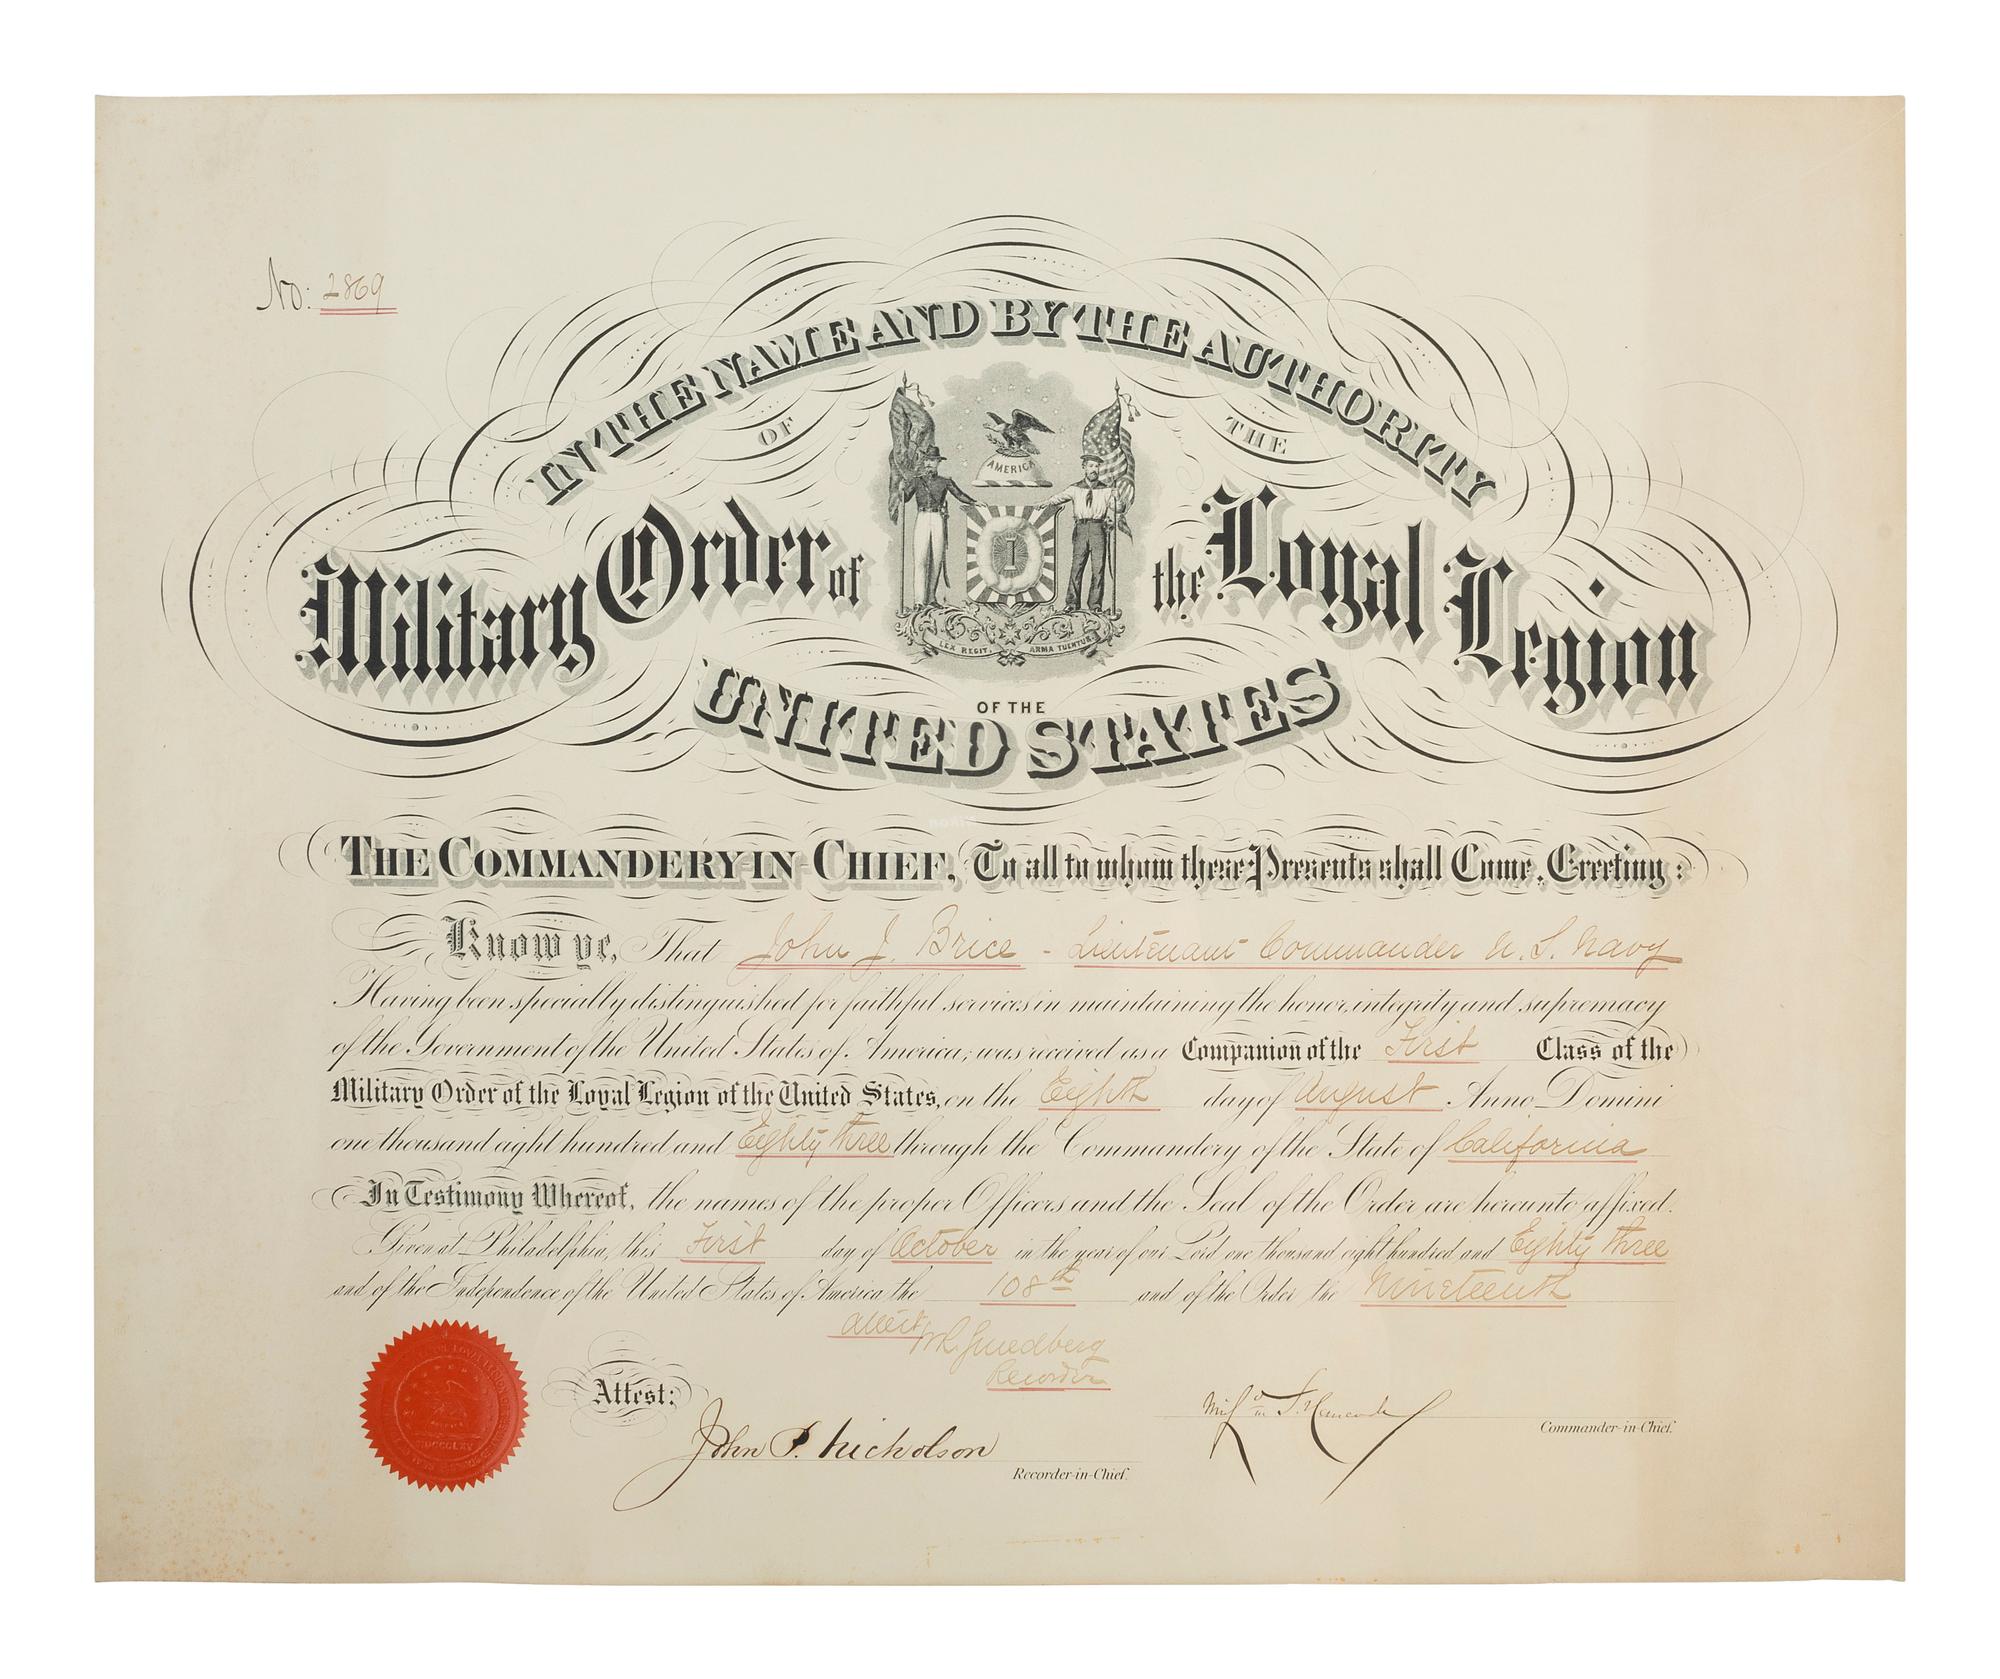 No: 2869
IN THE NAME AND BY THE AUTHORITY
OF THE
AMERICA
1
LEX REGIT, ARMA TUENTUR
Military Order of the Loyal Legion
OF THE
UNITED STATES
THE COMMANDERY IN CHIEF, To all to whom these Presents shall Come, Greeting:
Know ye, That John J. Brice - Lieutenant Commander U. S. Navy
Having been specially distinguished for faithful services in maintaining the honor, integrity and supremacy
of the Government of the United States of America; was received as a Companion of the First Class of the
Military Order of the Loyal Legion of the United States, on the Eighth day of August Anno Domini
one thousand eight hundred and Eighty three through the Commandery of the State of California
In Testimony Whereof, the names of the proper Officers and the Seal of the Order are hereunto affixed.
Given at Philadelphia, this First day of October in the year of our Lord one thousand eight hundred and Eighty three
and of the Independence of the United States of America the 108th and of the Order the Nineteenth
Attest
Recorder
Attest:
John P. Nicholson
Recorder-in-Chief.
Winf'd S. Hancock
Commander-in-Chief.
MDCCCLXV